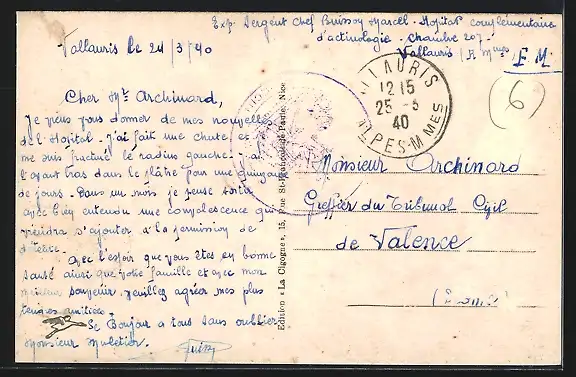 Exp. Sergent Chef Buisson Marcel - Hopital complementaire
d'actinologie - chambre 207 -
Vallauris (A. Mmes)
F. M
Vallauris le 24/3/40
Cher Mr Archinard,
Je viens vous donner de mes nouvelles
de l'Hopital - J'ai fait une chute et
me suis fracturé le radius gauche -
bras dans le plâtre pour une quinzaine
de jours. Dans un mois je pense sortir
avec bien entendu une convalescence qui
viendra s'ajouter a la permission de
détente.
Avec l'espoir que vous êtes en bonne
santé ainsi que votre famille et avec mon
meilleur souvenir, veuillez agréer mes plus
tendres amitiés.
Le Bonjour a tous sans oublier
Monsieur Muletier.
Edition « La Cigogne », 15, Rue St-François-de-Paule, Nice
VALLAURIS
12 15
25 - 3
40
ALPES-MMES
(6)
Monsieur Archinard
Greffier du Tribunal Civil
de Valence
(Drome)